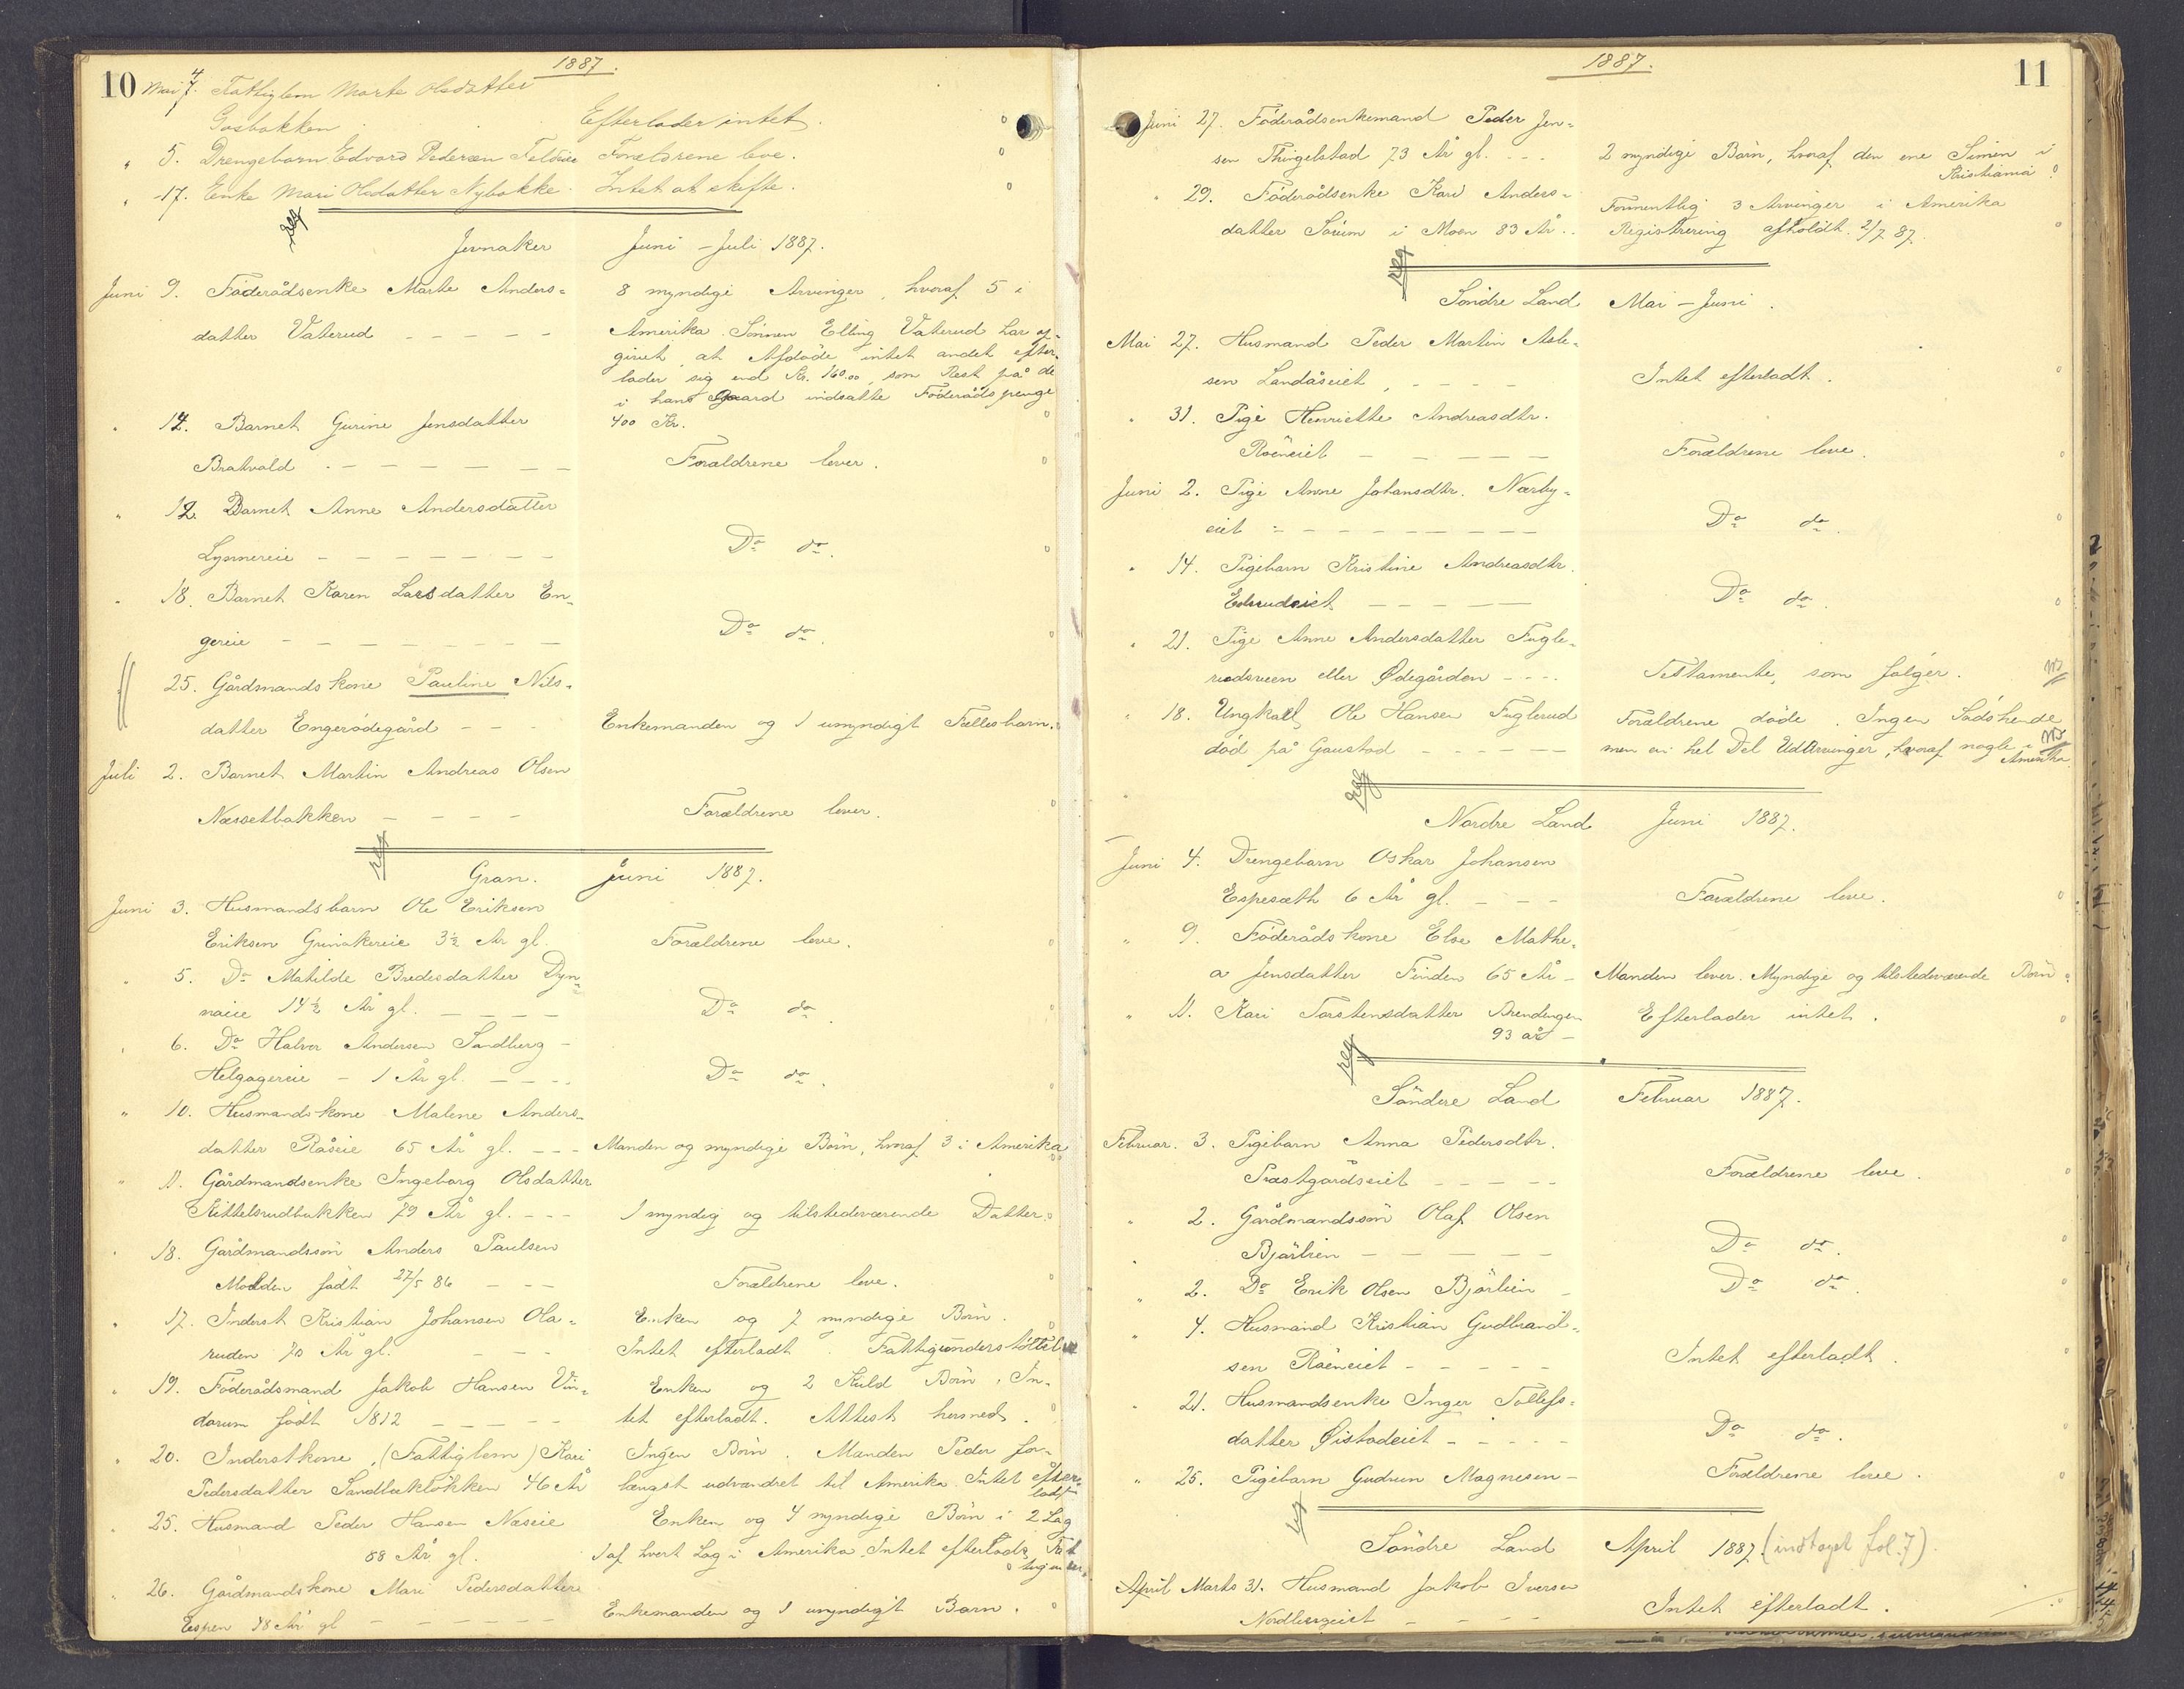 10
1887.
Mai 4. Fattiglem Marte Olsdatter
Gosbakken . . Efterlader intet.
" 5. Drengebarn Edvard Pedersen Foreldrene leve.
" 17. Enke Mari Olsdatter Nybakke. Intet at skifte.
Jevnaker Juni – Juli 1887.
Juni 9. Föderådsenke Marte Anders= 8 myndige Arvinger, hvoraf 5 i
datter Vaterud – – – – – Amerika. Sönnen Elling Vaterud har op-
givet at Afdöde intet andet efter-
lader sig end Kr. 160.00, som Rest på de
i hans Gaard indsatte Föderådspenge
" 12. Barnet Gurine Jensdatter 400 Kr.
Bratvold – – – – – – – Forældrene lever.
" 12. Barnet Anne Andersdatter
Lynnereie – – – – – – – Do do.
" 18. Barnet Karen Larsdatter En-
gereie – – – – – – – Do do.
25. Gårdmandskone Pauline Nils-
datter Engerödegård – – – Enkemanden og 1 umyndigt Fællesbarn.
Juli 2. Barnet Martin Andreas Olsen
Næssetbakken – – – – Forældrene lever.
Gran. Juni 1887.
Juni 3. Husmandsbarn Ole Eriksen
Eriksen Grinakereie 3½ År gl. Forældrene leve.
" 5. Do Matilde Bredesdatter Dyn=
naeie 14½ År gl. – – – – Do do.
" 6. Do Halvor Andersen Sandberg –
Helgagereie – 1 År gl. – – – Do do.
" 10. Husmandskone Malene Anders-
datter Råseie 65 År gl. – – – Manden og myndige Börn, hvoraf 3 i Amerika
" 11. Gårdmandsenke Ingeborg Olsdatter
Kittelsrudbakken 79 År gl. – – – 1 myndig og tilstedeværende Datter.
" 18. Gårdmandssön Anders Paulsen
Molden födt 27/5 86 – – – Forældrene leve.
" 17. Inderst Kristian Johansen Ola- Enken og 7 myndige Börn.
ruden 70 År gl. – – – Intet efterladt. Fattigunderstöttelse
" 19. Föderådsmand Jakob Hansen Vin- Enken og 2 Kuld Börn. In-
dorum födt 1812 – – – – – tet efterladt. Attest hermed.
" 20. Inderstkone, (Fattiglem) Kari Ingen Börn. Manden Peder for-
Pedersdatter Sandbækløkken 46 År længst udvandret til Amerika. Intet efter-
ladt
" 25. Husmand Peder Hansen Næseie Enken og 4 myndige Börn i 2 Lag
88 År gl. 1 af hvert Lag i Amerika. Intet efterladt.
" 26. Gårdmandskone Mari Pedersdatter
Espen 48 År gl – – – – – – Enkemanden og 1 umyndigt Barn.
1887.
11
Juni 27. Föderådsenkemand Peder Jen=
sen Thingelstad 73 År gl. – – – 2 myndige Börn, hvoraf den ene Simen i
Kristiania
" 29. Föderådsenke Kari Anders= Formentlig 3 Arvinger i Amerika
datter Sörum i Moen 83 År. . Registrering afholdt 2/7 87.
Söndre Land Mai – Juni.
Mai 27. Husmand Peder Martin Asle=
sen Landåseiet, – – – – Intet efterladt.
" 31. Pige Henriette Andreasdtr.
Röeneiet – – – – – Forældrene leve.
Juni 2. Pige Anne Johansdtr. Nærby=
eiet – – – – – – – – Do do.
" 14. Pigebarn Kristine Andreasdtr.
– – – – – Do do.
" 21. Pige Anne Andersdatter Fugle-
rudsveen eller Ødegården – – – Testamente, som fölger.
" 18. Ungkarl Ole Hansen Fuglerud Forældrene döde. Ingen Södskende
död på Gaustad – – – – – – men en hel Del Udarvinger, hvoraf nogle i
Amerika
Nordre Land Juni 1887.
Juni 4. Drengebarn Oskar Johansen
Espesæth 6 År gl. – – – Forældrene leve.
" 9. Föderådskone Else Mathe=
a Jensdatter Finden 65 År – Manden lever. Myndige og tilstedeværende Börn
" 11. Kari Torstensdatter Brendingen Efterlader intet.
93 år –
Söndere Land Februar 1887.
Februar. 3. Pigebarn Anna Pedersdtr.
Præstgårdseiet – – – – – Forældrene leve.
" 2. Gårdmandssön Olaf Olsen
Bjørlien – – – – – Do do.
" 2. Do Erik Olsen Bjørlien – Do do.
" 4. Husmand Kristian Gudbrand=
sen Röeneiet – – – – – Intet efterladt.
" 21. Husmandsenke Inger Tollefs=
datter Øistadeiet – – – – – Do do.
" 25. Pigebarn Gudrun Magnesen – Forældrene leve.
Söndre Land April 1887. (indtaget fol. 7).
April Marts 31. Husmand Jakob Iversen
– – – – Intet efterladt.